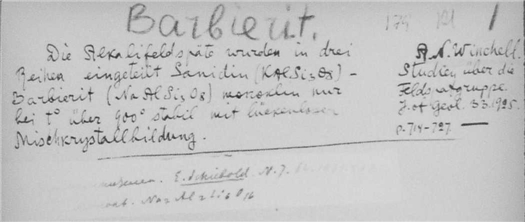 Barbierit.
179 121 1
Die Alkalifeldspäte wurden in drei
Reihen eingeteilt Sanidin (KAlSi3O8) –
Barbierit (NaAlSi3O8) monoklin nur
bei t° über 900° stabil mit lückenloser
Mischkrystallbildung.
A. N. Winchell.
Studien über die
Feldspatgruppe.
J. of Geol. 33. 1925.
p. 714–727 —
E. Schiebold. N. J.